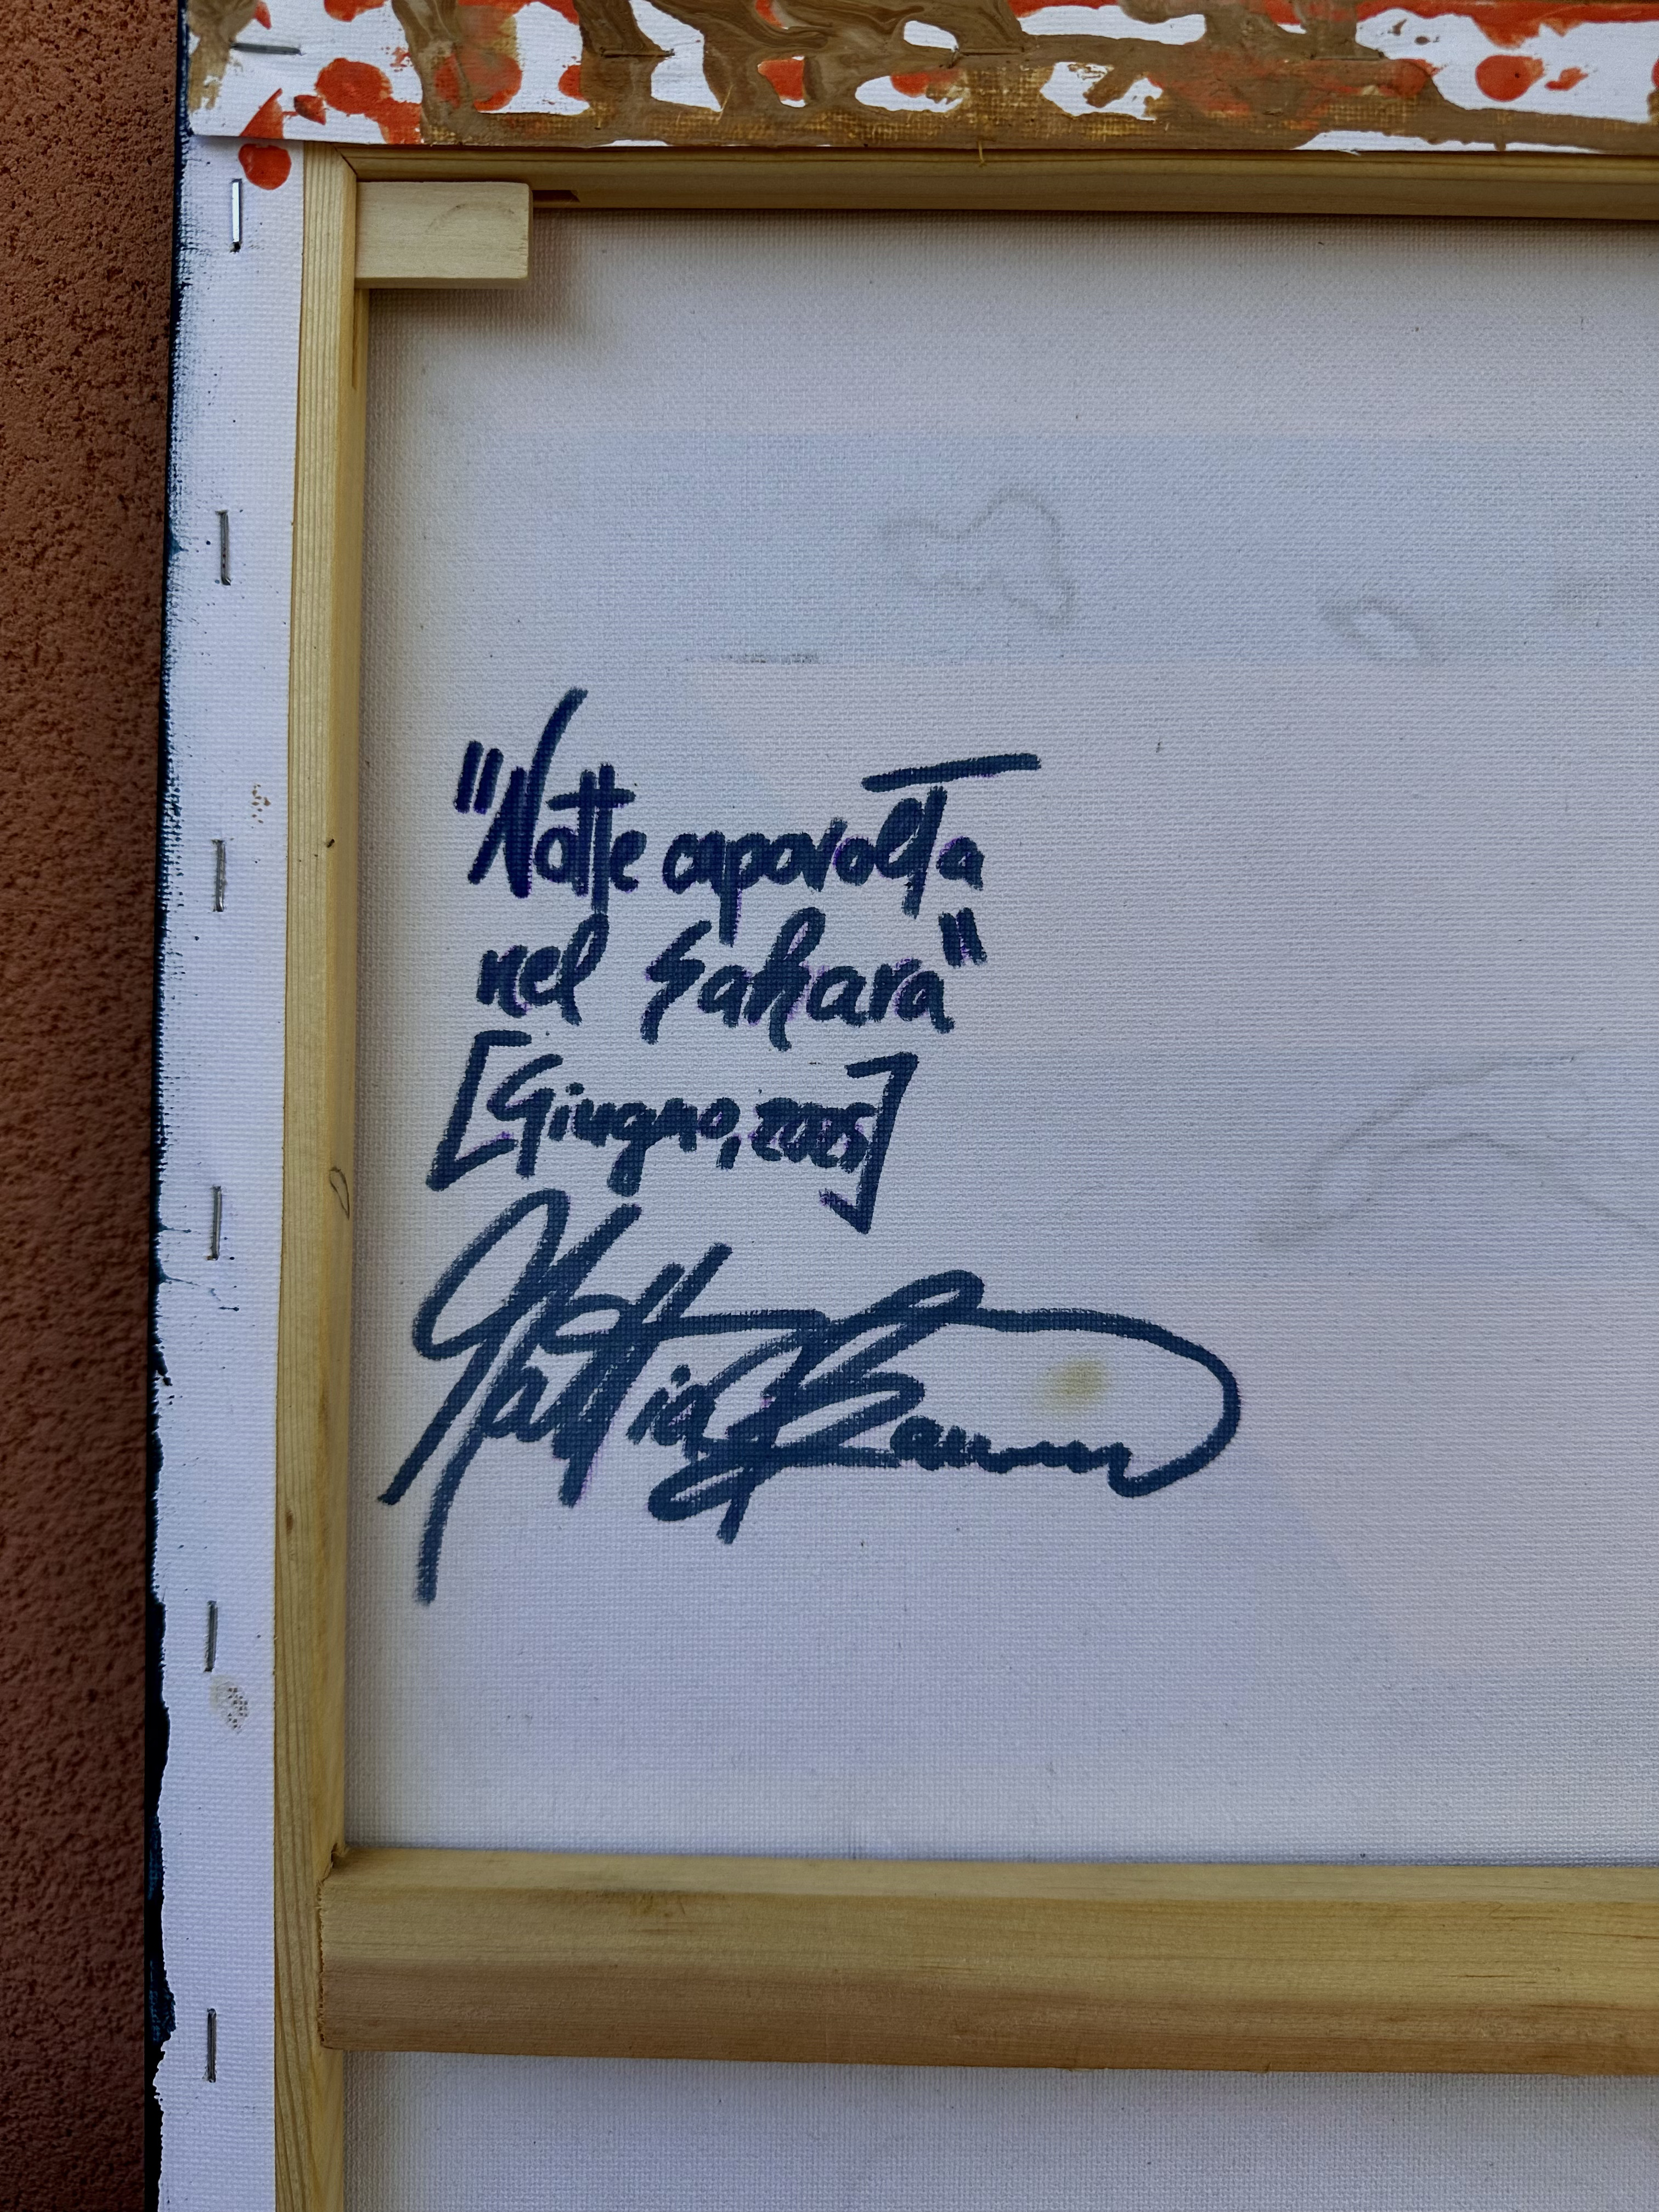 "Notte capovolta
nel Sahara"
[Giugno, 2025]
Mattia